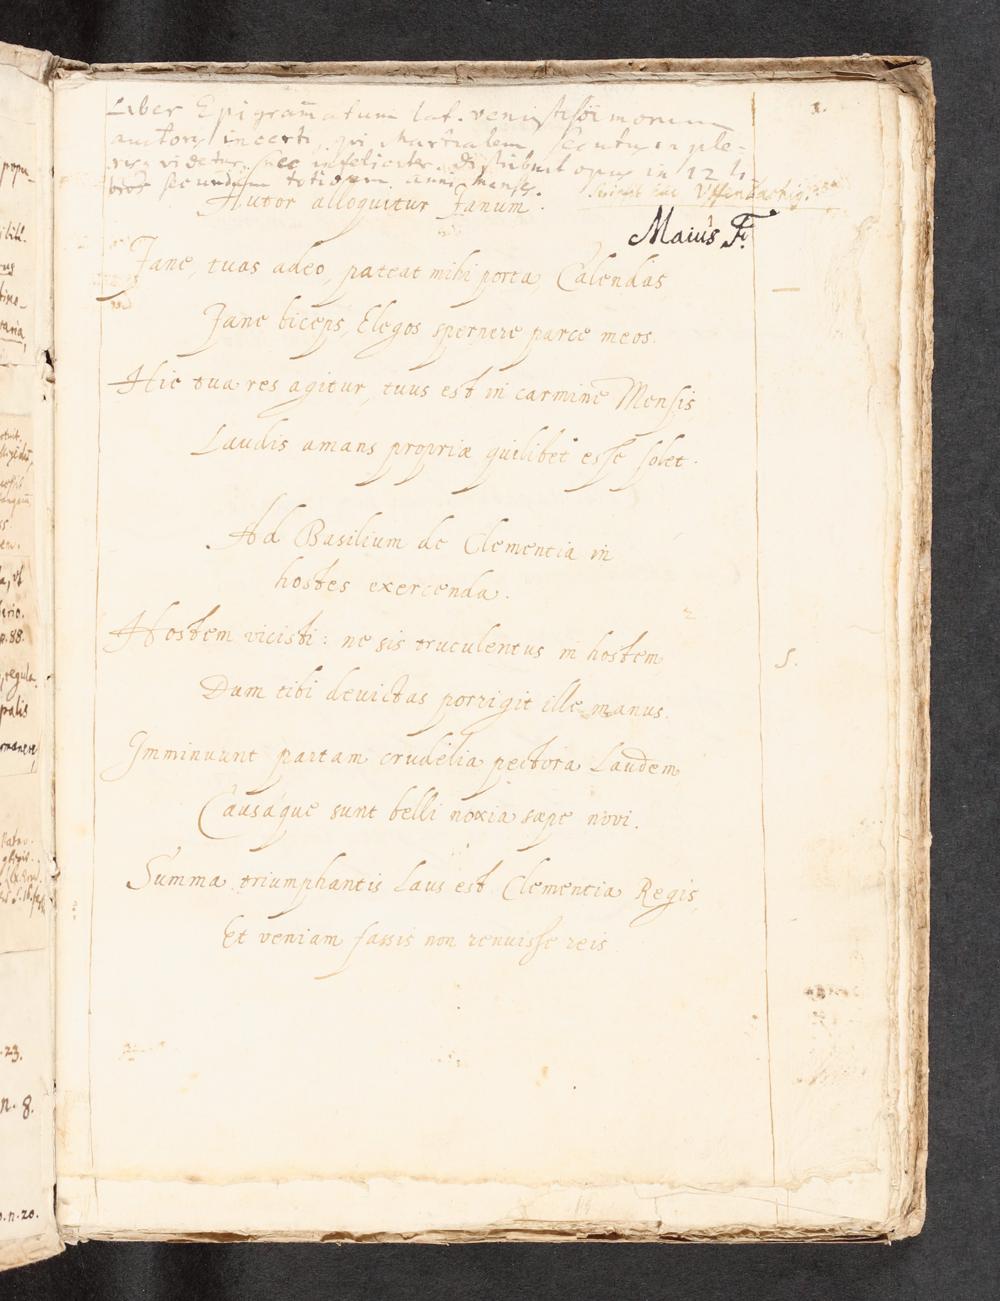 1.
Liber Epigram̄atum lat. venustissimorum
auctoris incerti, qui Martialem secutus in ple-
risq videtur, nec infeliciter. Distribuit opus in 12 li
bros secundum totidem anni menses.
haec Uffenbachius
Autor alloquitur Janum.
Maius F.
Jane, tuas adeo, pateat mihi porta, Calendas
Jane biceps, Elegos spernere parce meos.
Hic tua res agitur, tuus est in carmine Mensis
Laudis amans propriæ quilibet esse solet.
Ad Basilium de Clementia in
hostes exercenda.
Hostem vicisti: ne sis truculentus in hostem,
5.
Dum tibi devictas porrigit ille manus.
Imminuunt partam crudelia pectora Laudem
Causáque sunt belli noxia sæpe novi.
Summa triumphantis Laus est Clementia Regis,
Et veniam fassis non renuisse reis
propu-
regula
palis
p.88.
.23.
n. 8.
n.20.